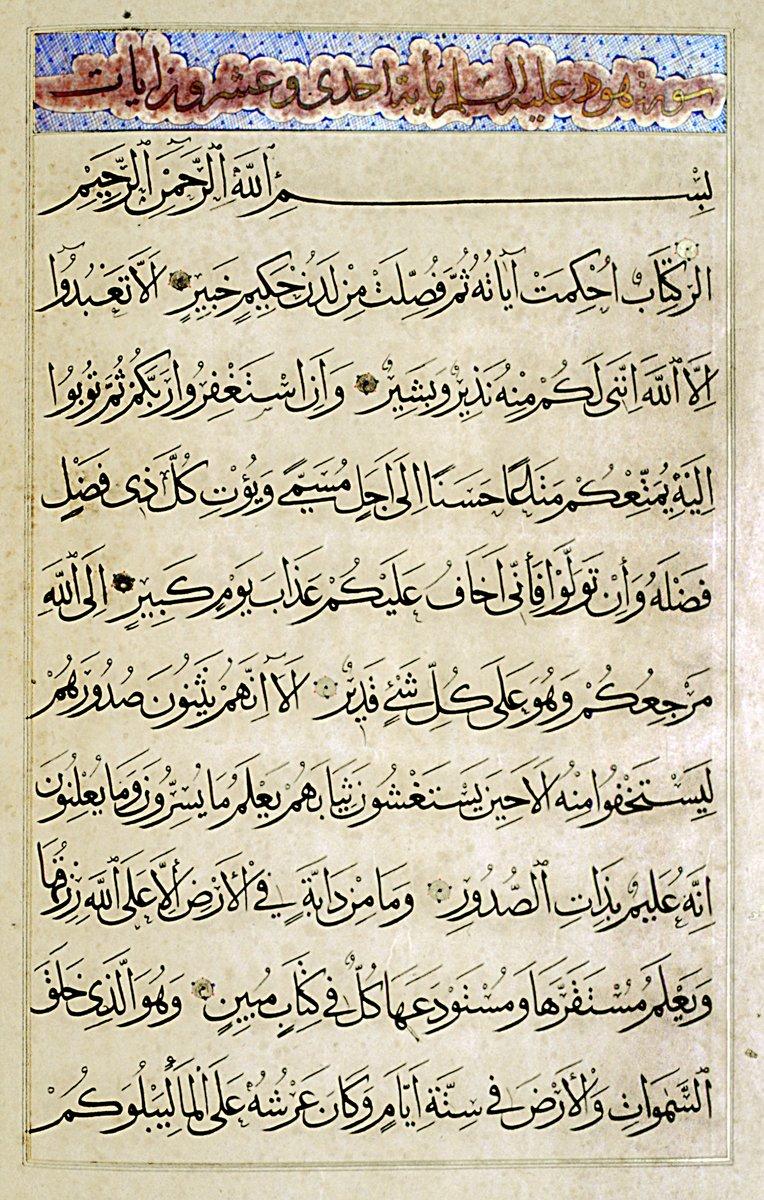 سورة هود عليه السلم مأية احدى وعشرون ايات
بِسْمِ اللَّهِ الرَّحْمٰنِ الرَّحِيمِ
الر كِتَابٌ اُحْكِمَتْ آيَاتُهُ ثُمَّ فُصِّلَتْ مِنْ لَدُنْ حَكِيمٍ خَبِيرٍ اَلَّا تَعْبُدُوا
اِلَّا اللَّهَ اِنَّنِى لَكُمْ مِنْهُ نَذِيرٌ وَبَشِيرٌ وَاَنِ اسْتَغْفِرُوا رَبَّكُمْ ثُمَّ تُوبُوا
اِلَيْهِ يُمَتِّعْكُمْ مَتَاعًا حَسَنًا اِلَى اَجَلٍ مُسَمًّى وَيُؤْتِ كُلَّ ذِى فَضْلٍ
فَضْلَهُ وَأَنْ تَوَلَّوْا فَأَنِّى اَخَافُ عَلَيْكُمْ عَذَابَ يَوْمٍ كَبِيرٍ اِلَى اللَّهِ
مَرْجِعُكُمْ وَهُوَ عَلَى كُلِّ شَيْءٍ قَدِيرٌ اَلَا اِنَّهُمْ يَثْنُونَ صُدُورَهُمْ
لِيَسْتَخْفُوا مِنْهُ اَلَا حِينَ يَسْتَغْشُونَ ثِيَابَهُمْ يَعْلَمُ مَا يُسِرُّونَ وَمَا يُعْلِنُونَ
اِنَّهُ عَلِيمٌ بِذَاتِ الصُّدُورِ وَمَا مِنْ دَابَّةٍ فِي الْأَرْضِ اِلَّا عَلَى اللَّهِ رِزْقُهَا
وَيَعْلَمُ مُسْتَقَرَّهَا وَمُسْتَوْدَعَهَا كُلٌّ فِى كِتَابٍ مُبِينٍ وَهُوَ الَّذِى خَلَقَ
السَّمٰوَاتِ وَالْأَرْضَ فِى سِتَّةِ اَيَّامٍ وَكَانَ عَرْشُهُ عَلَى الْمَاءِ لِيَبْلُوَكُمْ